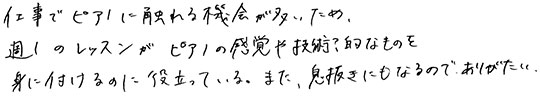 仕事でピアノに触れる機会が多いため、
週1のレッスンがピアノの感覚や技術?的なものを
身に付けるのに役立っている。また、息抜きにもなるので、ありがたい.